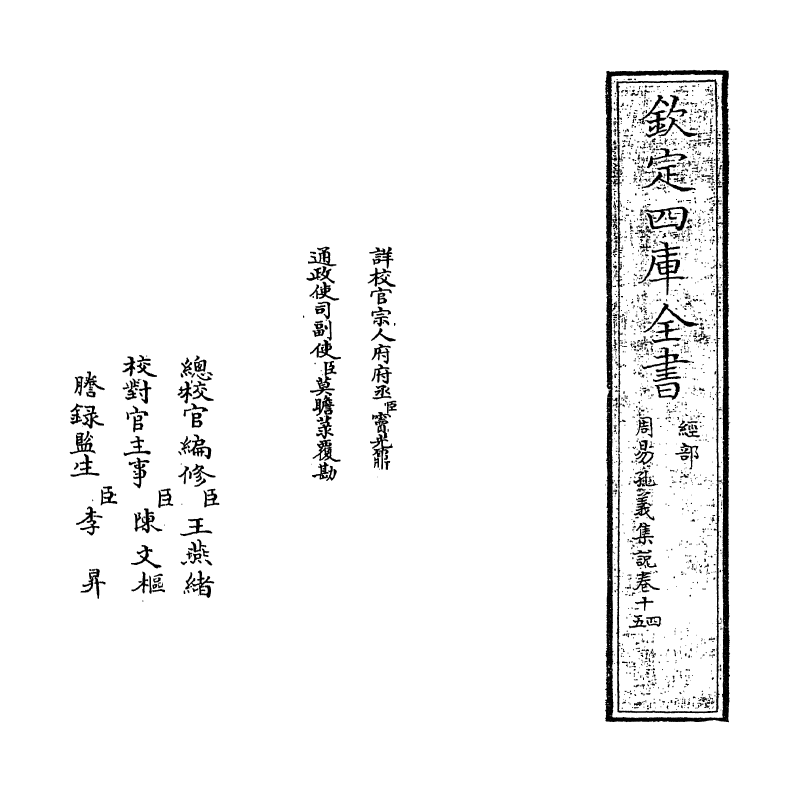 欽定四庫全書
經部
周易孔義集說卷十四
五
詳校官宗人府府丞臣竇光鼐
通政使司副使臣莫瞻菉覆勘
總校官編修臣王燕緒
校對官主事臣陳文樞
謄錄監生臣李昇